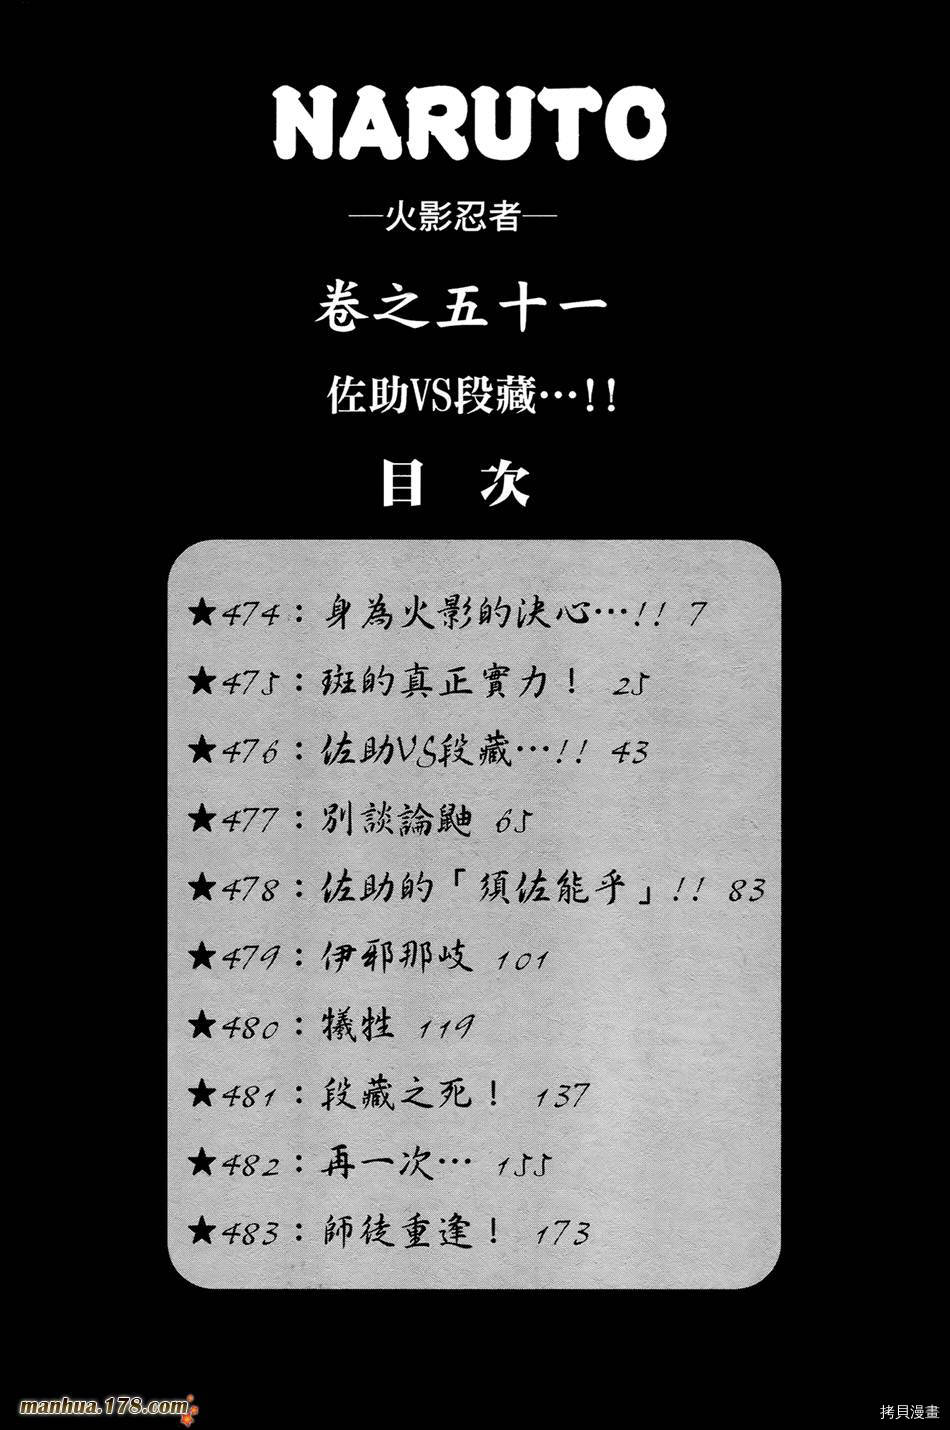 NARUTO
—火影忍者—
卷之五十一
佐助VS段藏…!!
目 次
★474：身為火影的決心…!! 7
★475：斑的真正實力！ 25
★476：佐助VS段藏…!! 43
★477：別談論鼬 65
★478：佐助的「須佐能乎」!! 83
★479：伊邪那岐 101
★480：犧牲 119
★481：段藏之死！ 137
★482：再一次… 155
★483：師徒重逢！ 173
manhua.178.com
拷貝漫畫